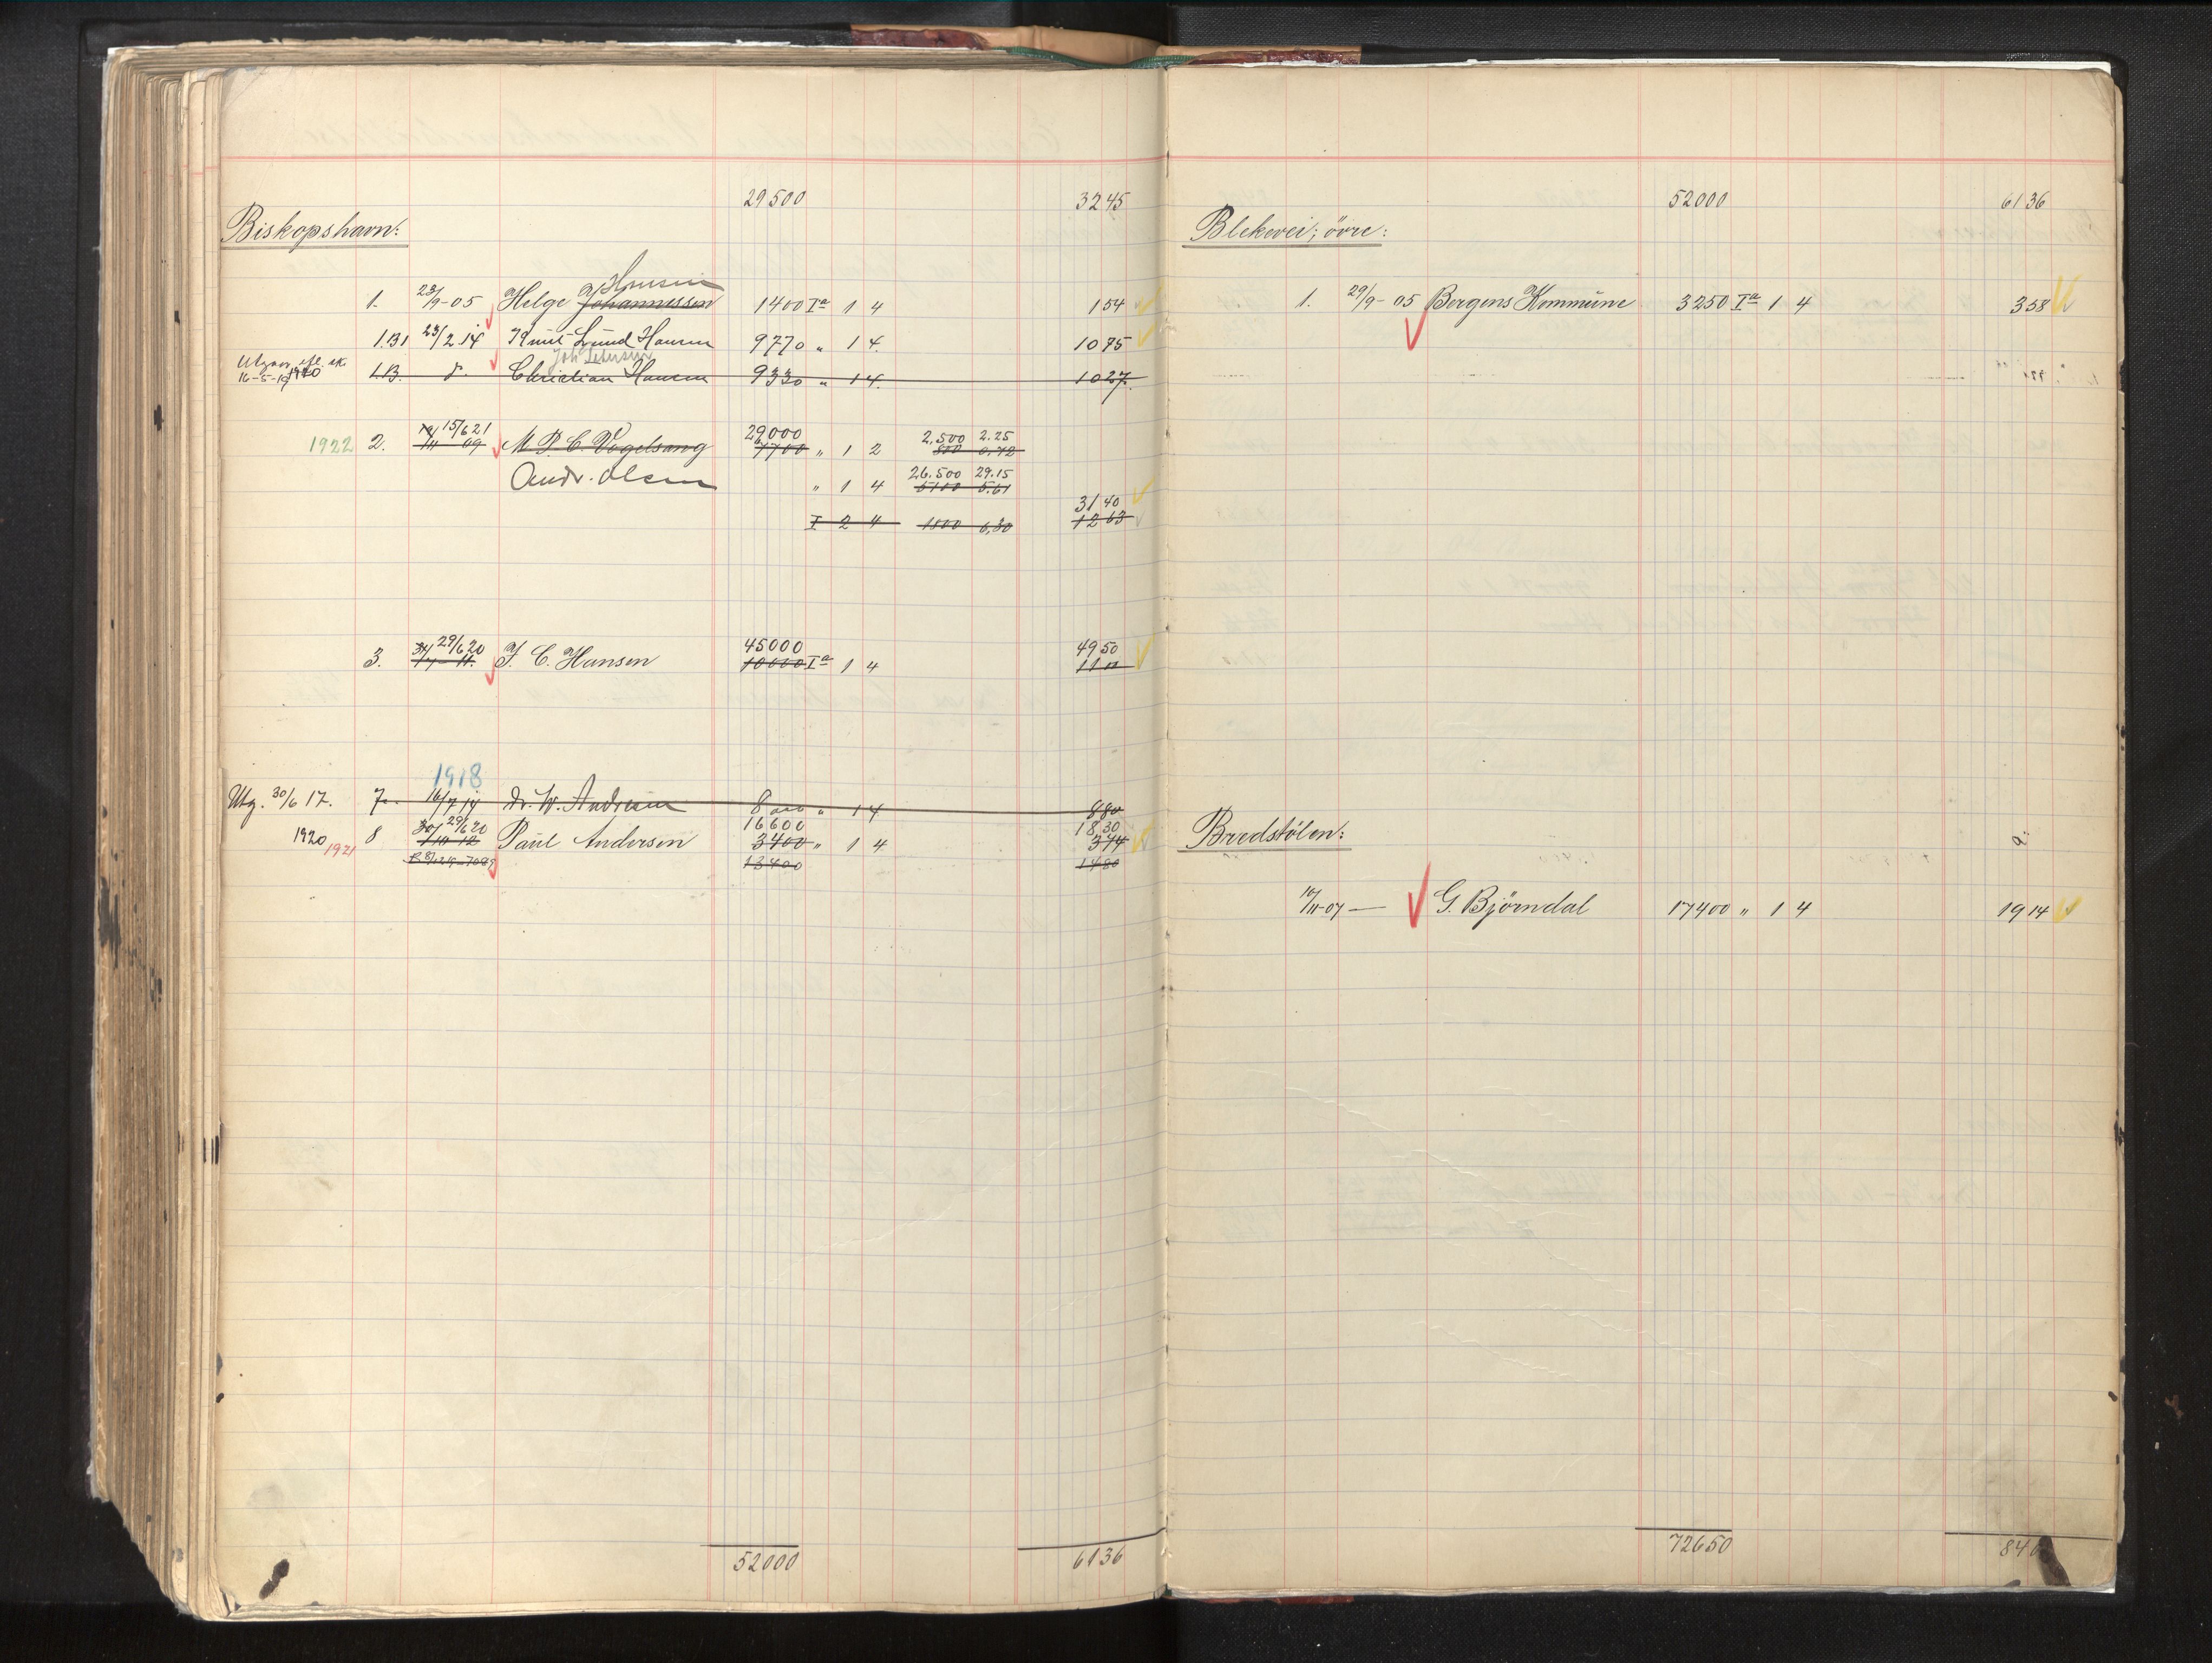 29500 3245
Biskopshavn:
Hansen
1. 23/9-05 Helge Johannessen 1400 Iª 1 4 154
1.B1 23/2 14 Knut Lund Hansen 9770 " 1 4. 1075
Joh Petersen
16-5-19 1920 1.B. Christian Hansen 9330 " 14. 1027.
15/6 21 29000 2.500 2.25
1922 2. 09 M. P. C. Vogelsang 7700 " 1 2 800 0,72
26.500 29.15
Andr. Olsen " 1 4 5100 5.61
31 40
I 2 4 1800 6,30 12 63
29/6 20 45000 49 50
3. 11. J. C. Hansen 10000 Iª 1 4 11 00
1918
Utg. 30/6 17. 7. 16/7 14 Dr. W. Andresen 8000 " 1 4 880
29/6 20 16600 18 30
1920 1921 8 30/10 12 Paul Andersen 3400 " 1 4 374
13400 1480
52000 6136
52000 6136
Blekevei; övre:
1. 29/9-05 Bergens Kommune 3250 Iª 1 4 358
Bredstölen:
10/11-07 — G. Björndal 17400 " 1 4 1914
72650 840